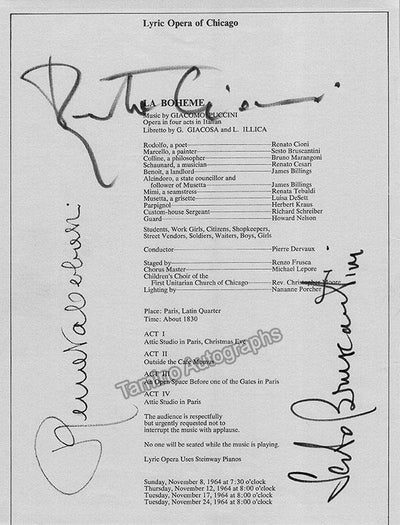 Lyric Opera of Chicago
Renato Cioni
LA BOHEME
Music by GIACOMO PUCCINI
Opera in four acts in Italian
Libretto by G. GIACOSA and L. ILLICA
Rodolfo, a poet Renato Cioni
Marcello, a painter Sesto Bruscantini
Colline, a philosopher Bruno Marangoni
Schaunard, a musician Renato Cesari
Benoit, a landlord James Billings
Alcindoro, a state councillor and
follower of Musetta James Billings
Mimi, a seamstress Renata Tebaldi
Musetta, a grisette Luisa DeSett
Parpignol Herbert Kraus
Custom-house Sergeant Richard Schreiber
Guard Howard Nelson
Students, Work Girls, Citizens, Shopkeepers,
Street Vendors, Soldiers, Waiters, Boys, Girls
Conductor Pierre Dervaux
Staged by Renzo Frusca
Chorus Master Michael Lepore
Children's Choir of the
First Unitarian Church of Chicago Rev. Christopher Moore
Lighting by Nananne Porcher
Place: Paris, Latin Quarter
Time: About 1830
ACT I
Attic Studio in Paris, Christmas Eve
ACT II
Outside the Café Momus
ACT III
An Open Space Before one of the Gates in Paris
ACT IV
Attic Studio in Paris
The audience is respectfully
but urgently requested not to
interrupt the music with applause.
No one will be seated while the music is playing.
Lyric Opera Uses Steinway Pianos
Sunday, November 8, 1964 at 7:30 o'clock
Thursday, November 12, 1964 at 8:00 o'clock
Tuesday, November 17, 1964 at 8:00 o'clock
Tuesday, November 24, 1964 at 8:00 o'clock
Renata Tebaldi
Sesto Bruscantini
Tamino Autographs